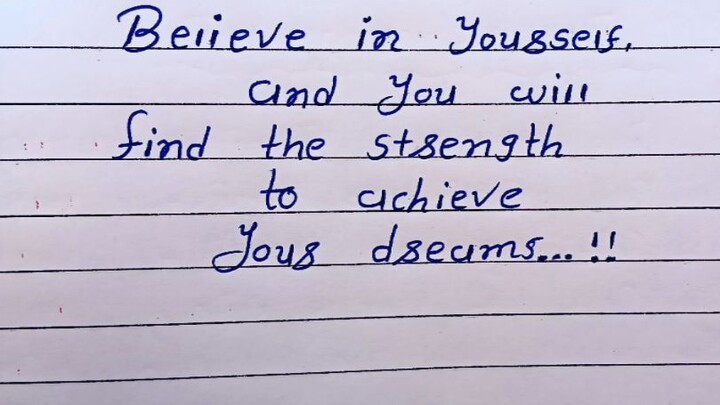 Believe in Yourself,
and You will
find the strength
to achieve
Your dreams...!!